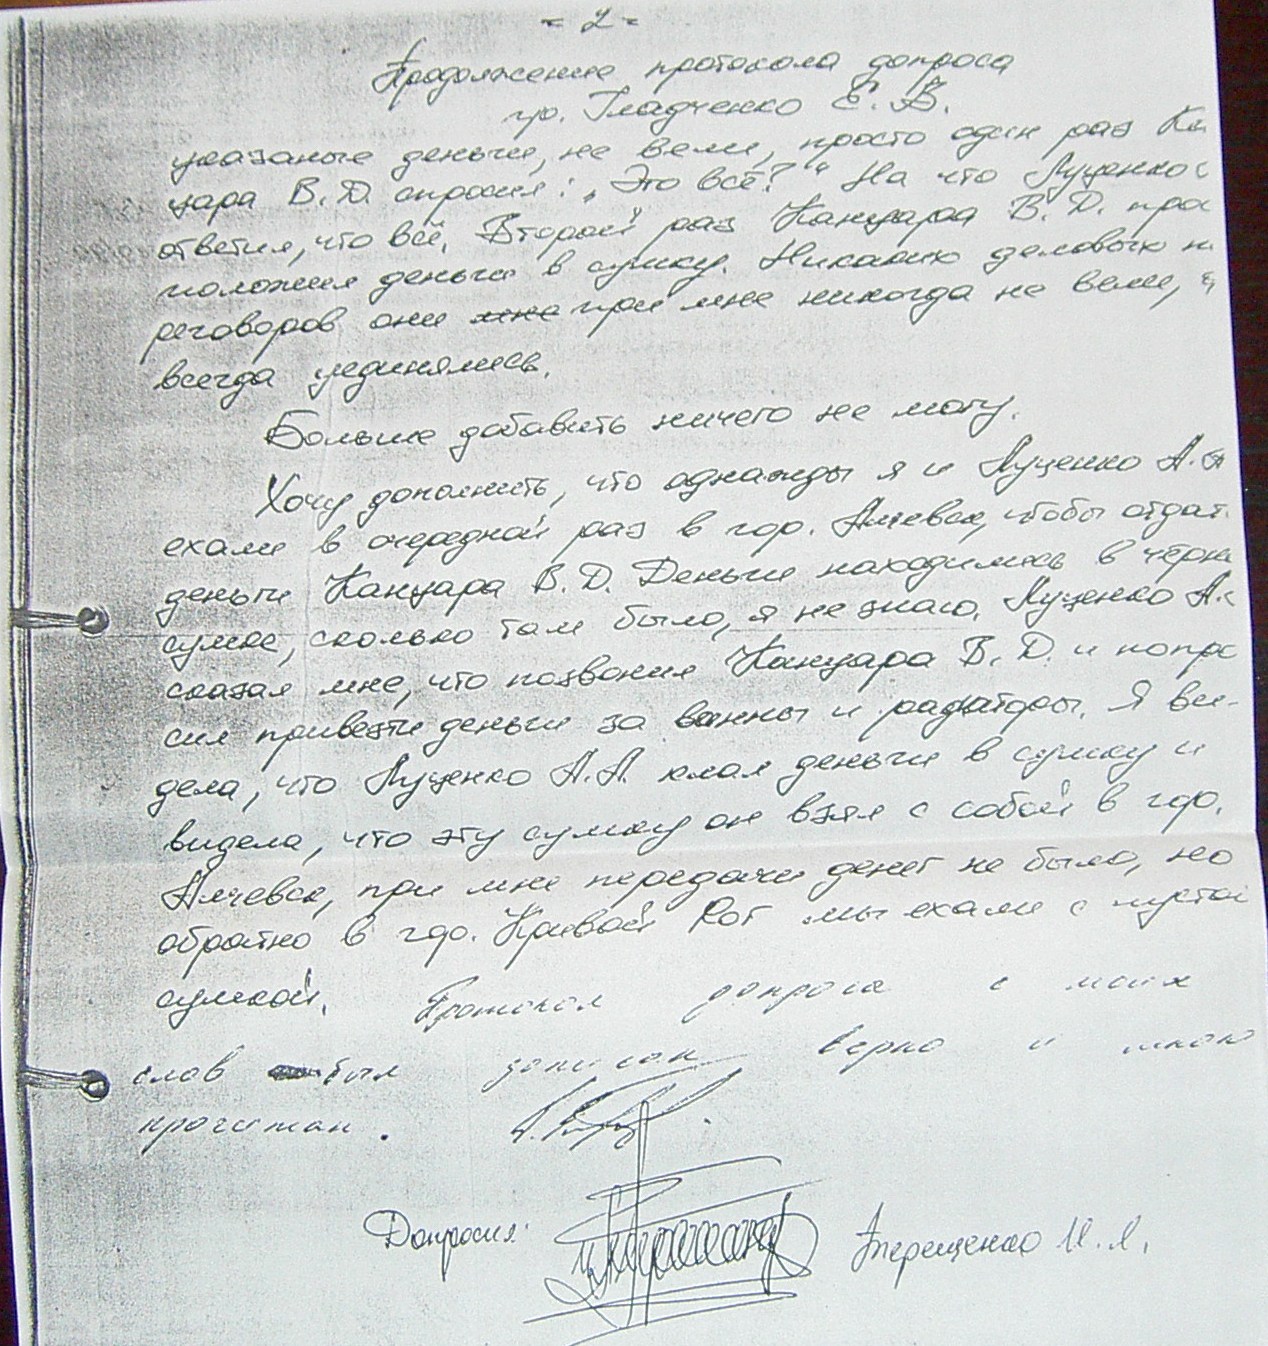 - 2 -
Продолжение протокола допроса
гр. Гладченко Е. В.
указаные деньги, не вели, просто один раз Кан
цара В. Д. спросил: „Это всё?“ На что Луценко
ответил, что всё. Второй раз Канцара В. Д. про
положил деньги в сумку. Никаких деловых п
реговоров они мне при мне никогда не вели,
всегда уединялись.
Больше добавить ничего не могу.
Хочу дополнить, что однажды я и Луценко А. А
ехали в очередной раз в гор. Алчевск, чтобы отдат
деньги Канцара В. Д. Деньги находились в чёрн
сумке, сколько там было, я не знаю. Луценко А.
сказал мне, что позвонил Канцара В. Д. и попро
сил привезти деньги за ванны и радиаторы. Я ви-
дела, что Луценко А. А. клал деньги в сумку и
видела, что эту сумку он взял с собой в гор.
Алчевск, при мне передачи денег не было, но
обратно в гор. Кривой Рог мы ехали с пустой
сумкой. Протокол допроса с моих
слов был записан верно и мною
прочитан.
Допросил: Терещенко И. Л.